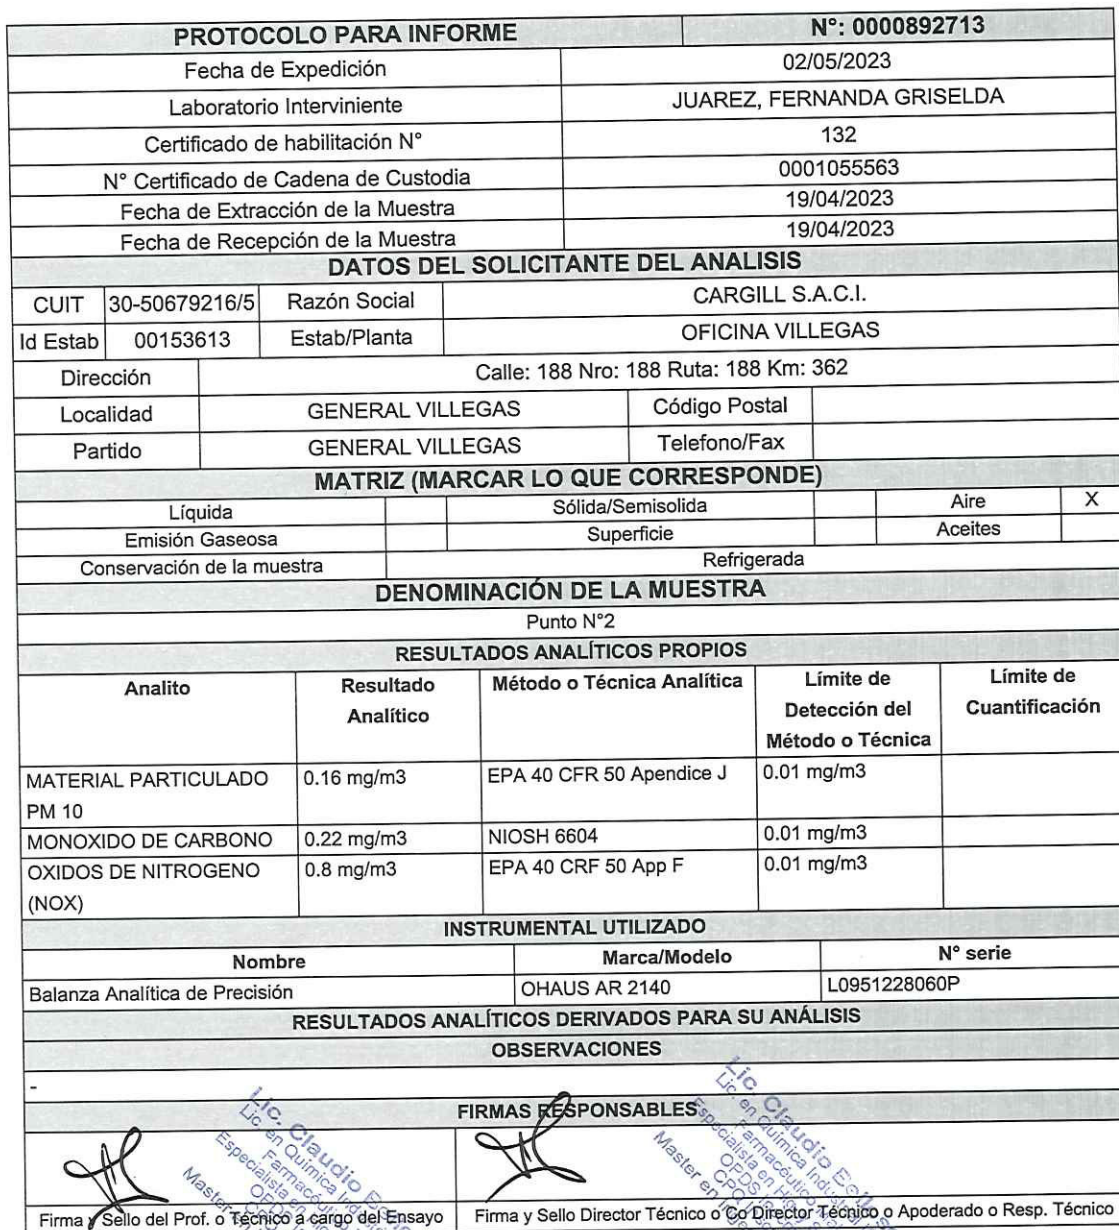 PROTOCOLO PARA INFORME N°: 0000892713
Fecha de Expedición 02/05/2023
Laboratorio Interviniente JUAREZ, FERNANDA GRISELDA
Certificado de habilitación N° 132
N° Certificado de Cadena de Custodia 0001055563
Fecha de Extracción de la Muestra 19/04/2023
Fecha de Recepción de la Muestra 19/04/2023
DATOS DEL SOLICITANTE DEL ANALISIS
CUIT 30-50679216/5 Razón Social CARGILL S.A.C.I.
Id Estab 00153613 Estab/Planta OFICINA VILLEGAS
Dirección Calle: 188 Nro: 188 Ruta: 188 Km: 362
Localidad GENERAL VILLEGAS Código Postal
Partido GENERAL VILLEGAS Telefono/Fax
MATRIZ (MARCAR LO QUE CORRESPONDE)
Líquida Sólida/Semisolida Aire X
Emisión Gaseosa Superficie Aceites
Conservación de la muestra Refrigerada
DENOMINACIÓN DE LA MUESTRA
Punto N°2
RESULTADOS ANALÍTICOS PROPIOS
Analito Resultado Analítico Método o Técnica Analítica Límite de Detección del Método o Técnica Límite de Cuantificación
MATERIAL PARTICULADO PM 10 0.16 mg/m3 EPA 40 CFR 50 Apendice J 0.01 mg/m3
MONOXIDO DE CARBONO 0.22 mg/m3 NIOSH 6604 0.01 mg/m3
OXIDOS DE NITROGENO (NOX) 0.8 mg/m3 EPA 40 CRF 50 App F 0.01 mg/m3
INSTRUMENTAL UTILIZADO
Nombre Marca/Modelo N° serie
Balanza Analítica de Precisión OHAUS AR 2140 L0951228060P
RESULTADOS ANALÍTICOS DERIVADOS PARA SU ANÁLISIS
OBSERVACIONES
-
FIRMAS RESPONSABLES
Lic. Claudio
Lic. en Química
Farmacéutico
Especialista en
Master en
Lic. Claudio
Lic. en Química
Farmacéutico
Especialista en
Master en
Firma y Sello del Prof. o Técnico a cargo del Ensayo Firma y Sello Director Técnico o Co Director Técnico o Apoderado o Resp. Técnico